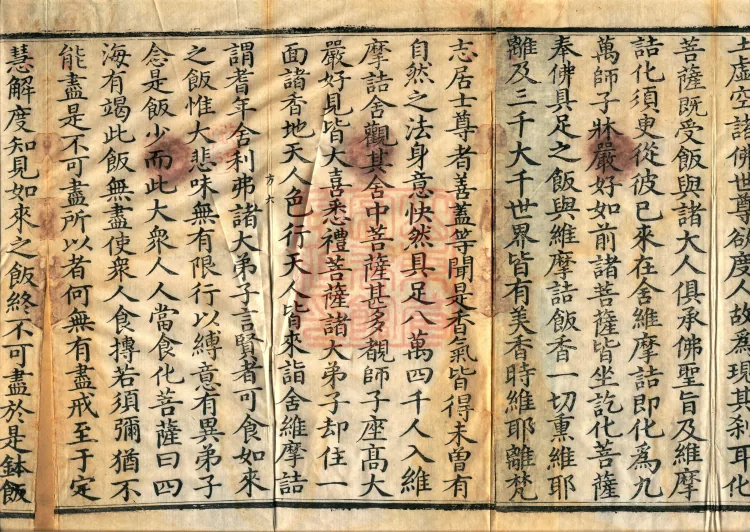 土虛空諸佛世尊欲度人故為現其刹耳化
菩薩既受飯與諸大人俱承佛聖旨及維摩
詰化須臾從彼已來在舍維摩詰即化為九
萬師子牀嚴好如前諸菩薩皆坐訖化菩薩
奉佛具足之飯與維摩詰飯香一切熏維耶
離及三千大千世界皆有美香時維耶離梵
志居士尊者善蓋等聞是香氣皆得未曾有
自然之法身意快然具足八萬四千人入維
摩詰舍觀其舍中菩薩甚多覩師子座高大
嚴好見皆大喜悉禮菩薩諸大弟子却住一
面諸香地天人色行天人皆來詣舍維摩詰
方六
謂耆年舍利弗諸大弟子言賢者可食如來
之飯惟大悲味無有限行以縛意有異弟子
念是飯少而此大衆人人當食化菩薩曰四
海有竭此飯無盡使衆人食摶若須彌猶不
能盡是不可盡所以者何無有盡戒至于定
慧解度知見如來之飯終不可盡於是鉢飯